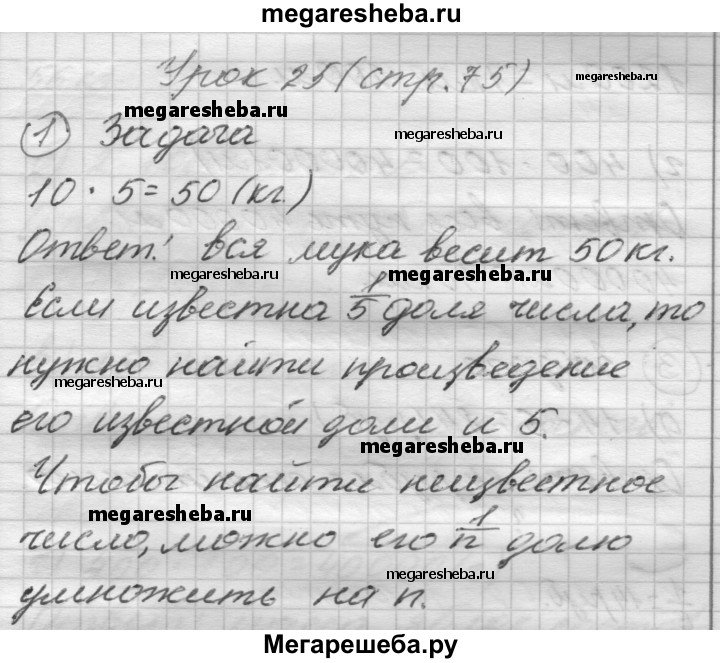 megaresheba.ru
Урок 25 (стр. 75)
megaresheba.ru
megaresheba.ru
megaresheba.ru
① Задача
10 · 5 = 50 (кг.)
Ответ: вся мука весит 50 кг.
megaresheba.ru
megaresheba.ru
Если известна 1/5 доля числа, то
нужно найти произведение
megaresheba.ru
его известной доли и 5.
megaresheba.ru
Чтобы найти неизвестное
megaresheba.ru
число, можно его 1/n долю
megaresheba.ru
умножить на n.
Мегарешеба.ру